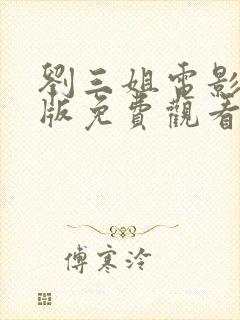 劉三姐電影
版免費觀看
傅寒泠